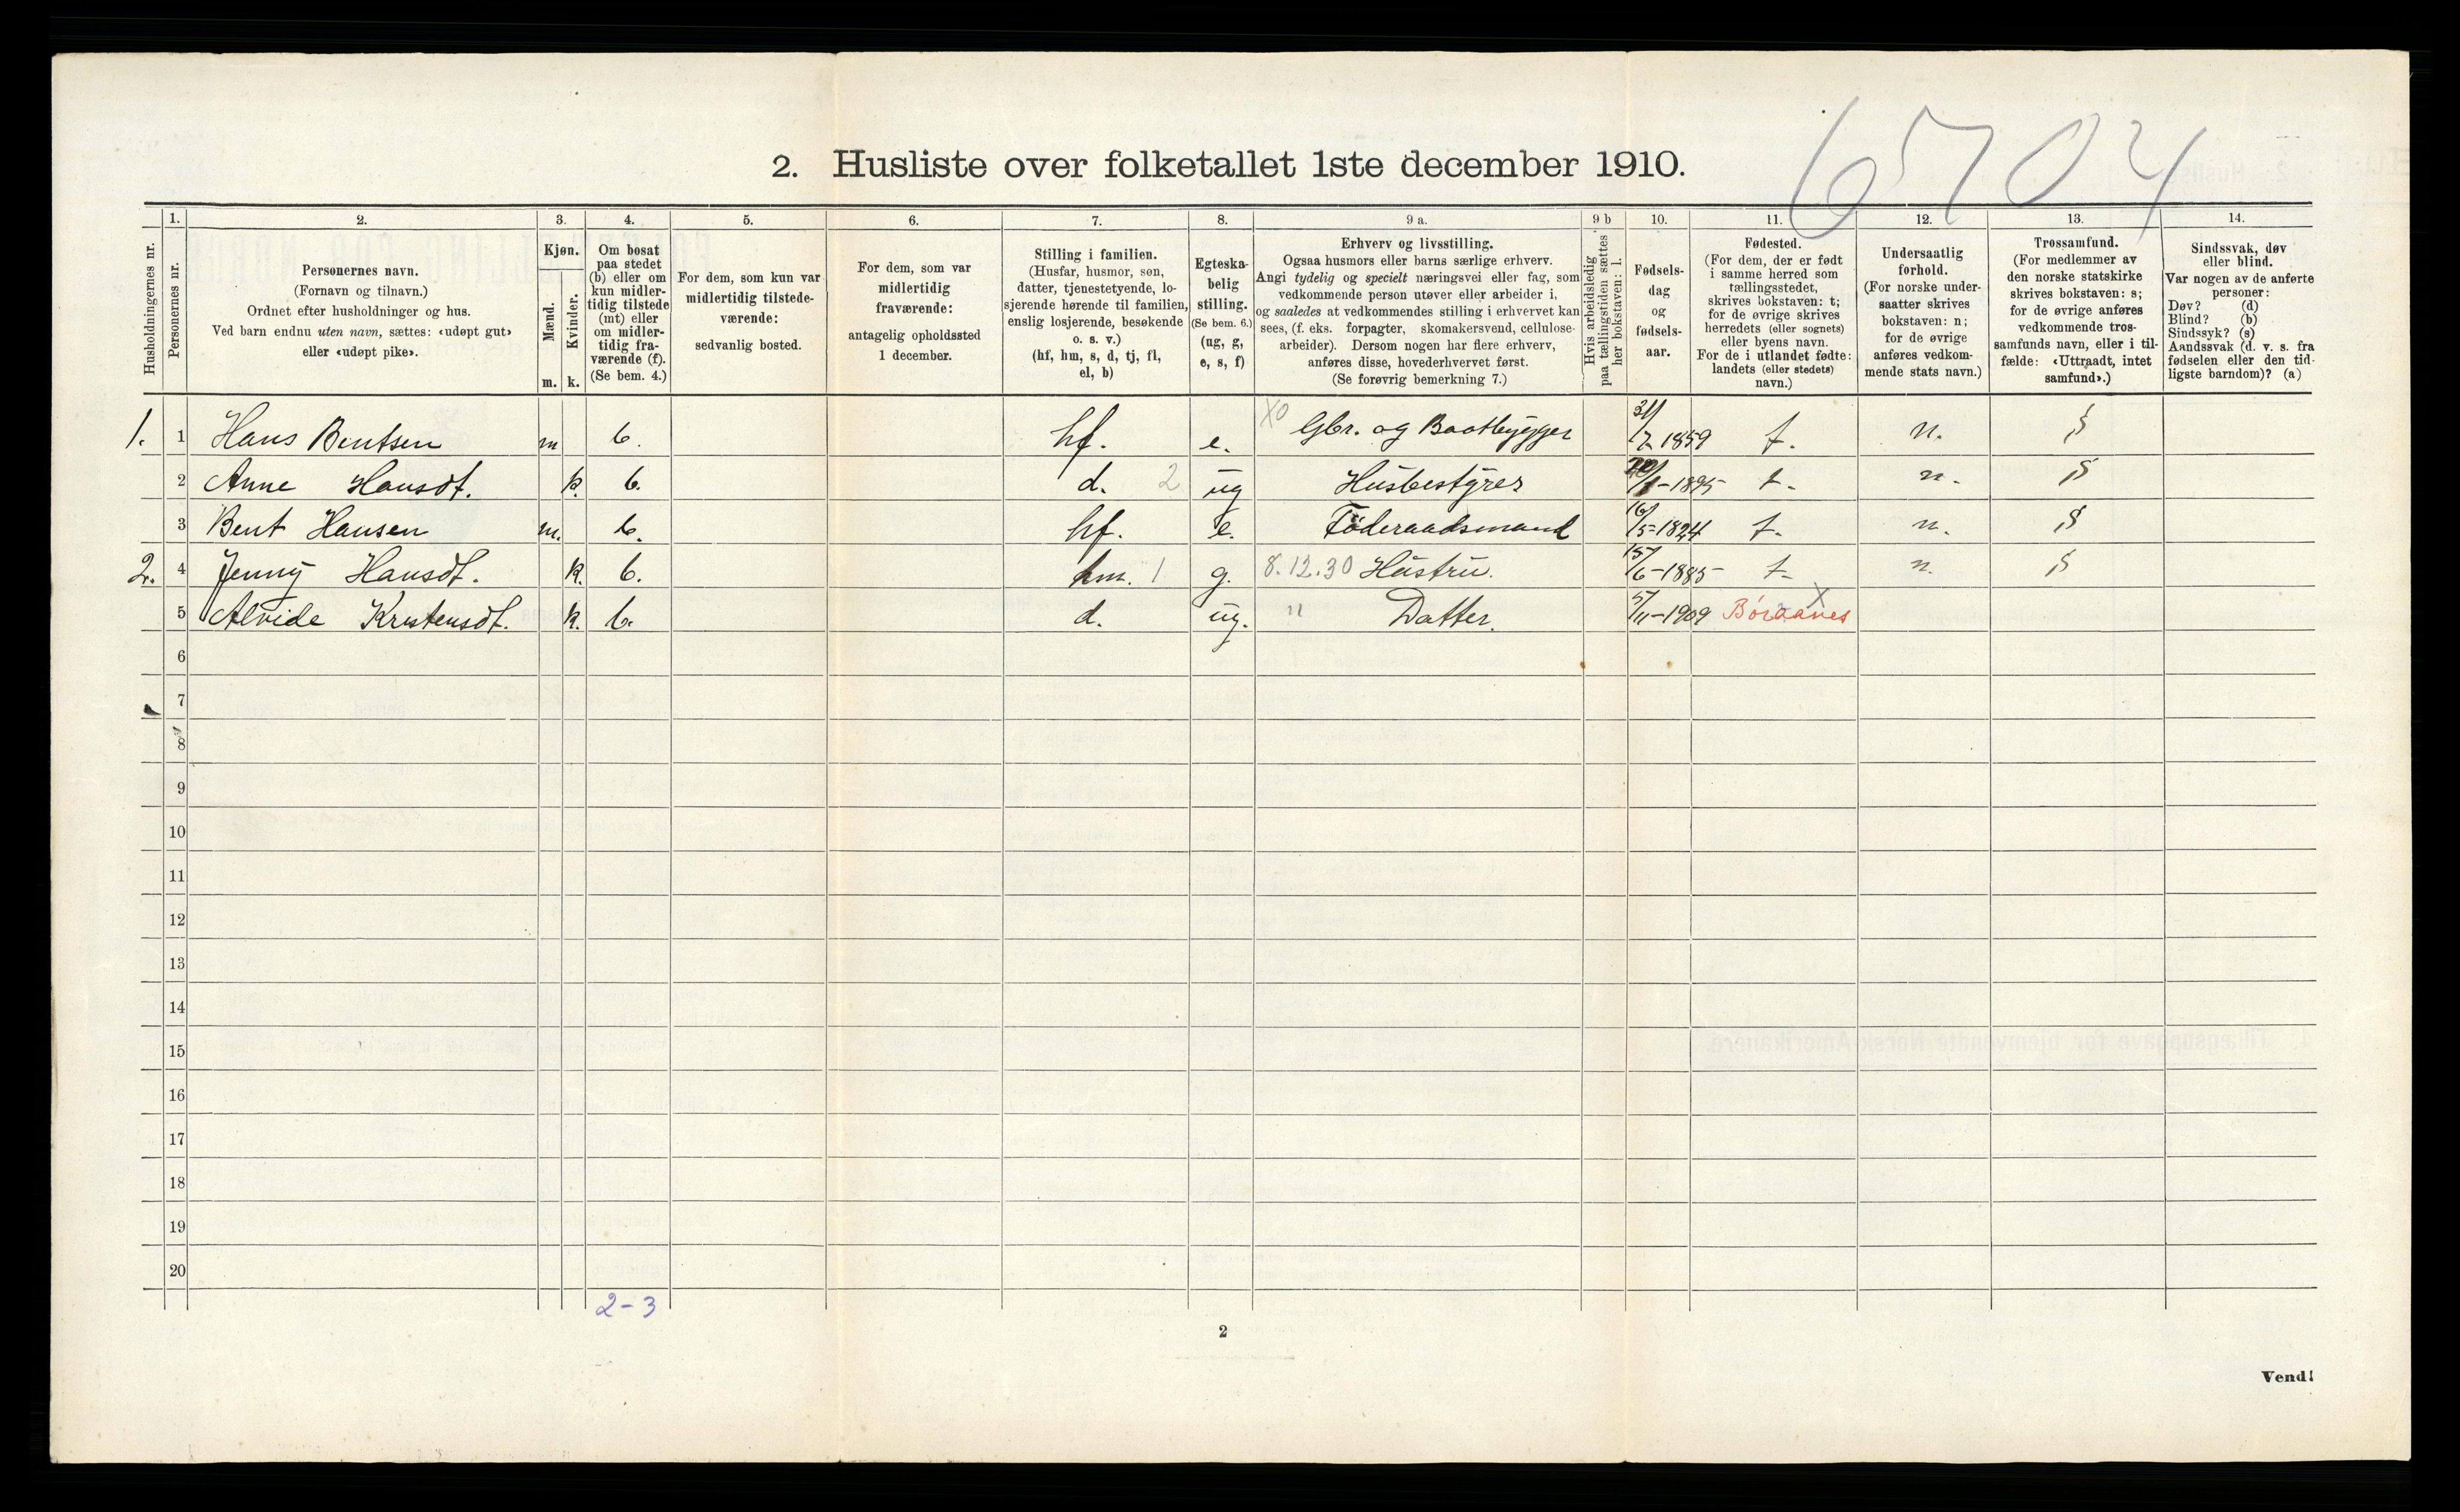 6704
2. Husliste over folketallet 1ste december 1910.
1. 2. 3. 4. 5. 6. 7. 8. 9 a. 9 b 10. 11. 12. 13. 14.
Husholdningernes nr.
Personernes nr.
Personernes navn.
(Fornavn og tilnavn.)
Ordnet efter husholdninger og hus.
Ved barn endnu uten navn, sættes: «udøpt gut»
eller «udøpt pike».
Kjøn.
Mænd.
Kvinder.
m. k.
Om bosat
paa stedet
(b) eller om
kun midler-
tidig tilstede
(mt) eller
om midler-
tidig fra-
værende (f).
(Se bem. 4.)
For dem, som kun var
midlertidig tilstede-
værende:
sedvanlig bosted.
For dem, som var
midlertidig
fraværende:
antagelig opholdssted
1 december.
Stilling i familien.
(Husfar, husmor, søn,
datter, tjenestetyende, lo-
sjerende hørende til familien,
enslig losjerende, besøkende
o. s. v.)
(hf, hm, s, d, tj, fl,
el, b)
Egteska-
belig
stilling.
(Se bem. 6.)
(ug, g,
e, s, f)
Erhverv og livsstilling.
Ogsaa husmors eller barns særlige erhverv.
Angi tydelig og specielt næringsvei eller fag, som
vedkommende person utøver eller arbeider i,
og saaledes at vedkommendes stilling i erhvervet kan
sees, (f. eks. forpagter, skomakersvend, cellulose-
arbeider). Dersom nogen har flere erhverv,
anføres disse, hovederhvervet først.
(Se forøvrig bemerkning 7.)
Hvis arbeidsledig
paa tællingstiden sættes
her bokstaven: l.
Fødsels-
dag
og
fødsels-
aar.
Fødested.
(For dem, der er født
i samme herred som
tællingsstedet,
skrives bokstaven: t;
for de øvrige skrives
herredets (eller sognets)
eller byens navn.
For de i utlandet fødte:
landets (eller stedets)
navn.)
Undersaatlig
forhold.
(For norske under-
saatter skrives
bokstaven: n;
for de øvrige
anføres vedkom-
mende stats navn.)
Trossamfund.
(For medlemmer av
den norske statskirke
skrives bokstaven: s;
for de øvrige anføres
vedkommende tros-
samfunds navn, eller i til-
fælde: «Uttraadt, intet
samfund».)
Sindssvak, døv
eller blind.
Var nogen av de anførte
personer:
Døv? (d)
Blind? (b)
Sindssyk? (s)
Aandssvak (d. v. s. fra
fødselen eller den tid-
ligste barndom)? (a)
1. 1 Hans Bentsen m b. hf. e. X0 Gbr. og Baatbygger 31/7-1859 t. n. s
2 Anne Hansdt. k. b. d. 2 ug Husbestyrer /1-1895 t. n. s
3 Bent Hansen m. b. hf. e. Føderaadsmand 16/5-1824 t. n. s
2. 4 Jenny Hansdt. k. b. hm. 1 g. 8.12.30 Hustru. 15/6-1885 t. n. s
5 Alvide Kristensdt. k. b. d. ug. " Datter. 5/11-1909 Boraanes X
6
7
8
9
10
11
12
13
14
15
16
17
18
19
20
2-3
2
Vend!